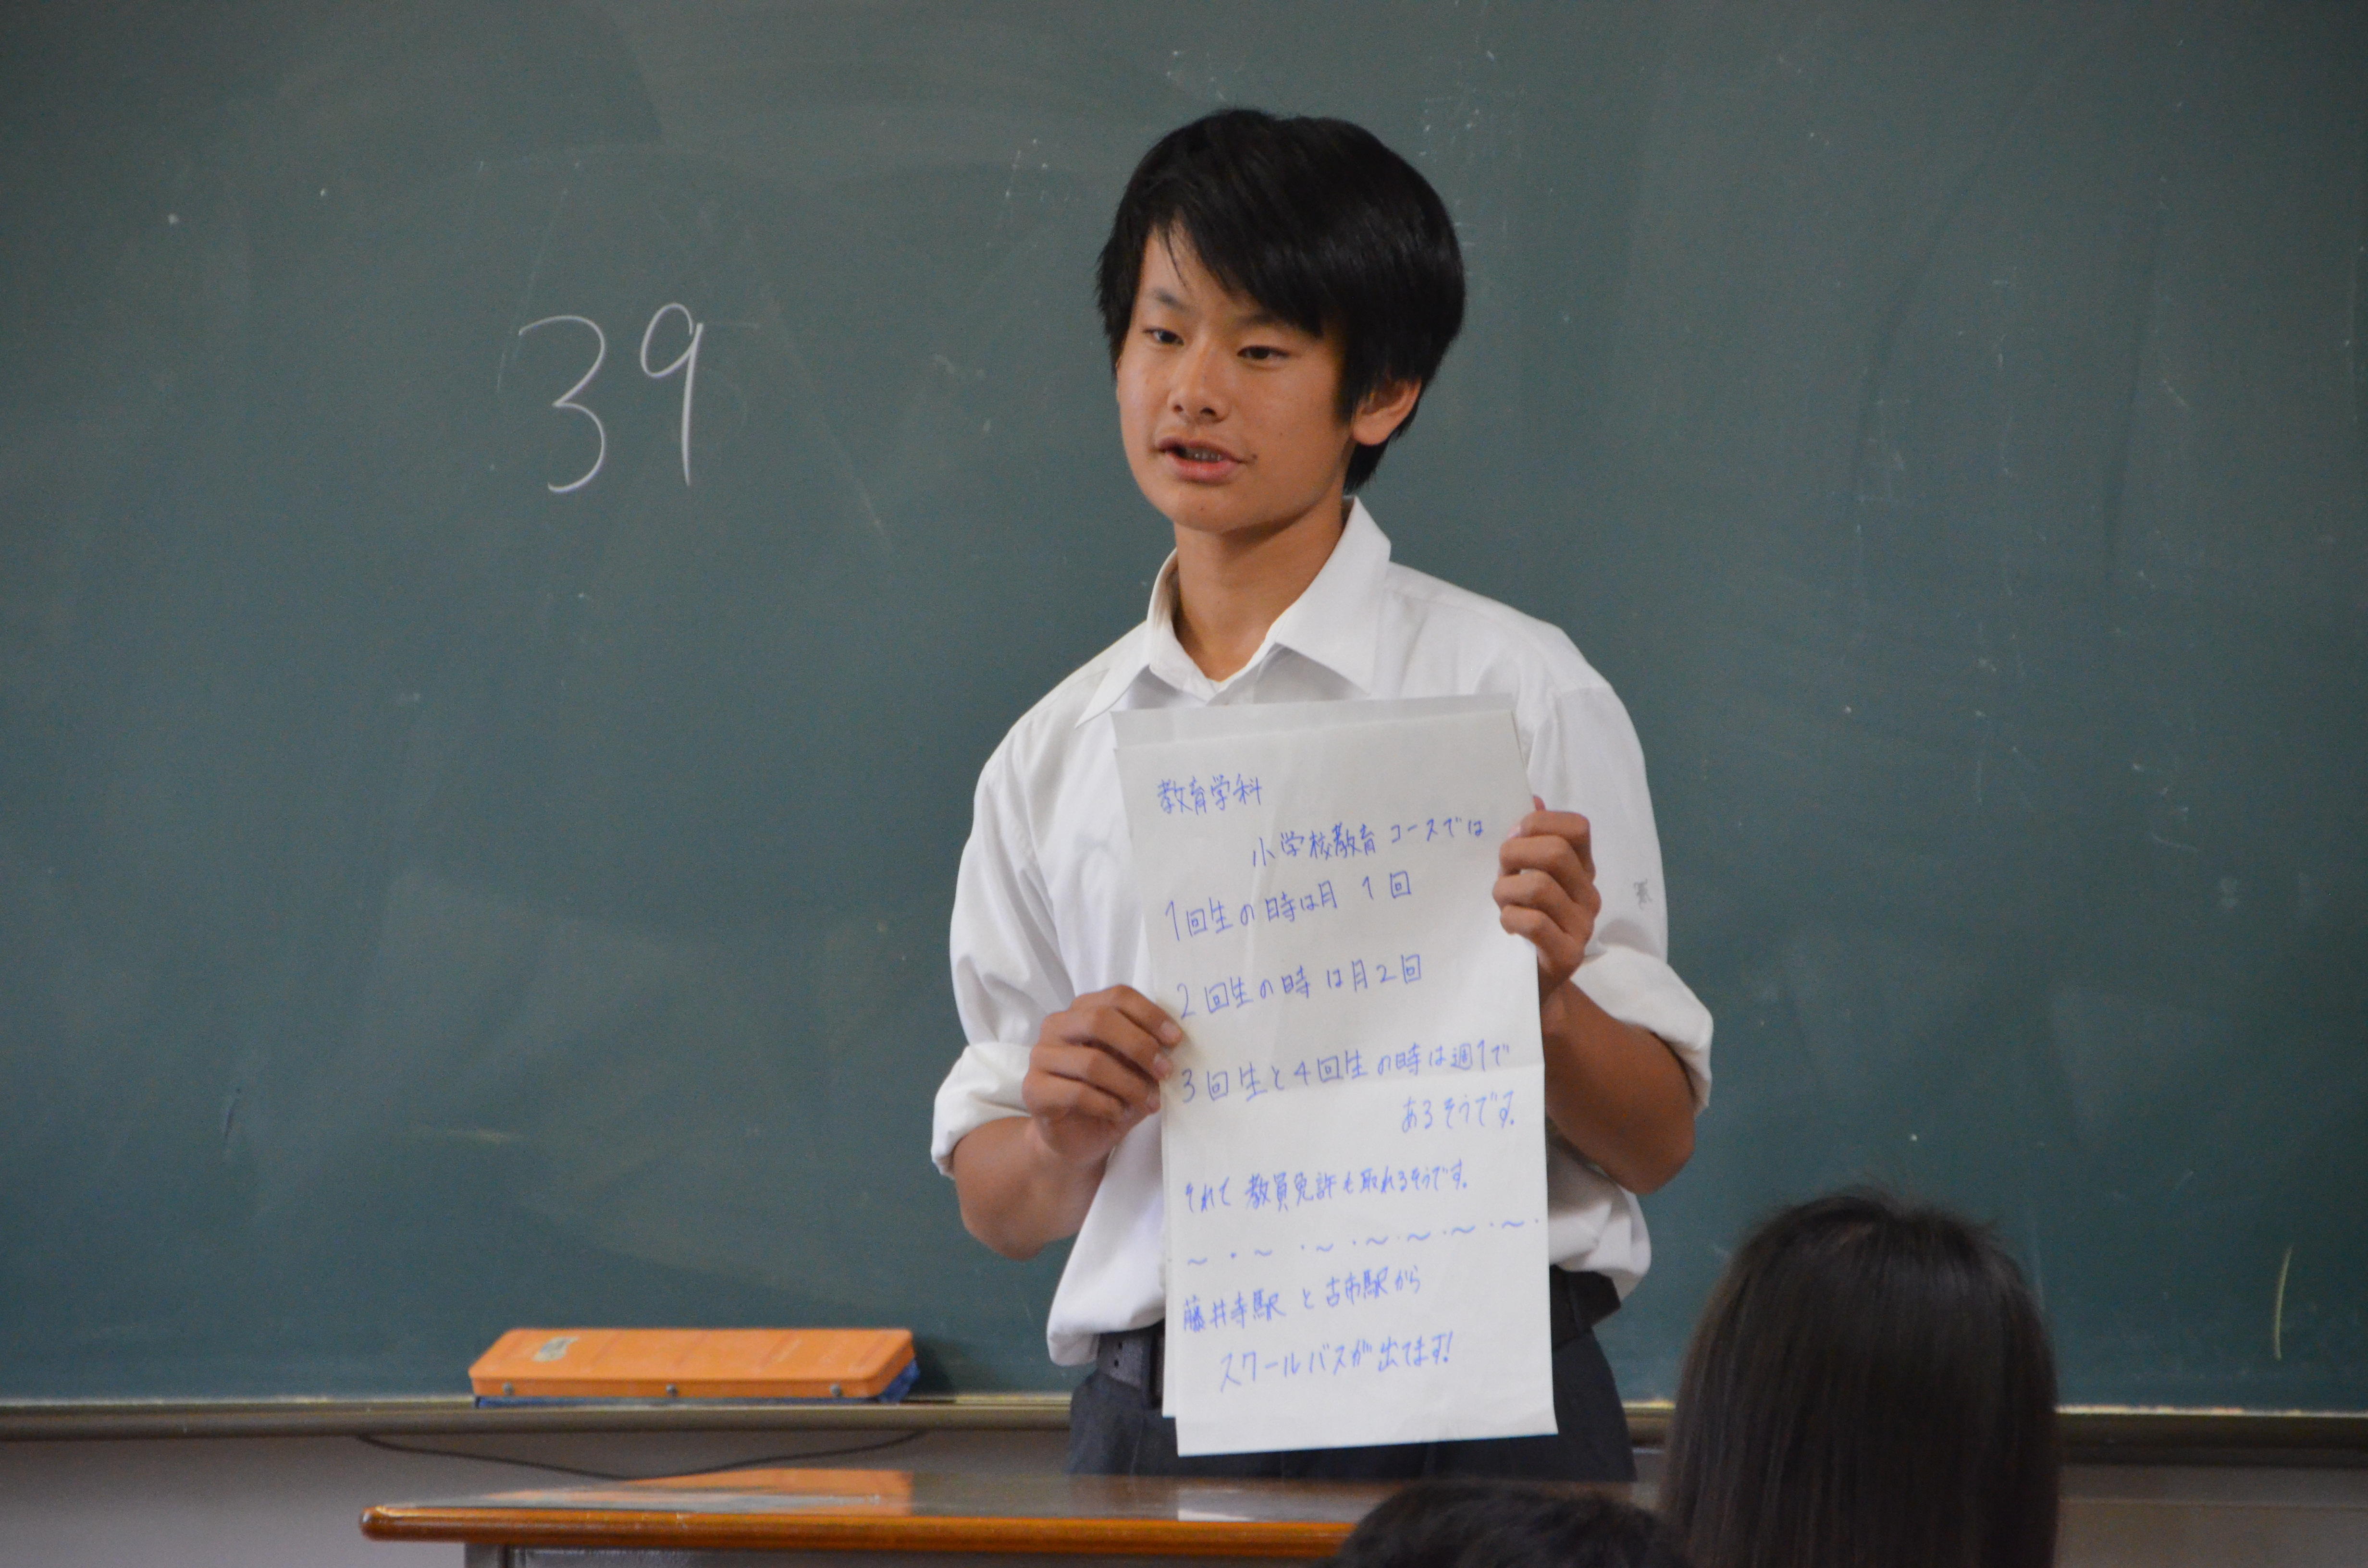 39
教育学科
小学校教育コースでは
1回生の時は月1回
2回生の時は月2回
3回生と4回生の時は週1で
あるそうです。
それで教員免許も取れるそうです。
〜・〜・〜・〜・〜・〜・〜・
藤井寺駅と古市駅から
スクールバスが出てます!